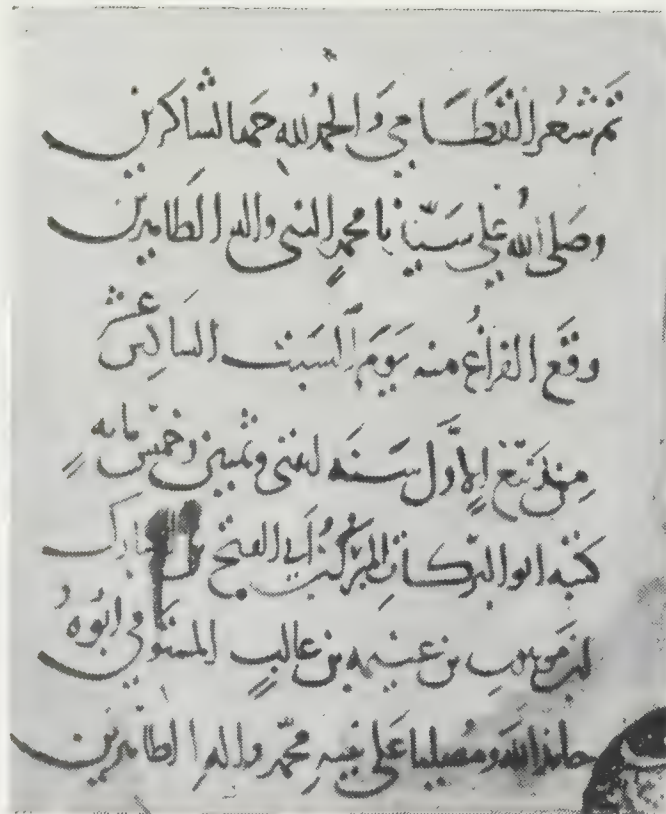 تم شعر القطامي والحمد لله حمد الشاكرين
وصلى الله على سيدنا محمد النبي واله الطاهرين
وقع الفراغ منه يوم السبت السادس عشر
من ربيع الاول سنة اثنى وثمنين وخمس مايه
كتبه ابو البركات المبارك ابى الفتح بن المبارك
بن موهوب بن غنيمه بن غالب المستوفى ابوه
حامدا لله ومصليا على نبيه محمد واله الطاهرين